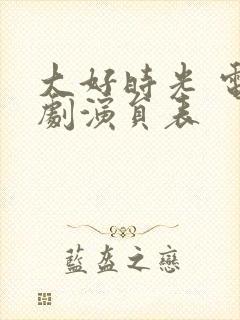 大好時光 電
劇演員表
藍盔之戀